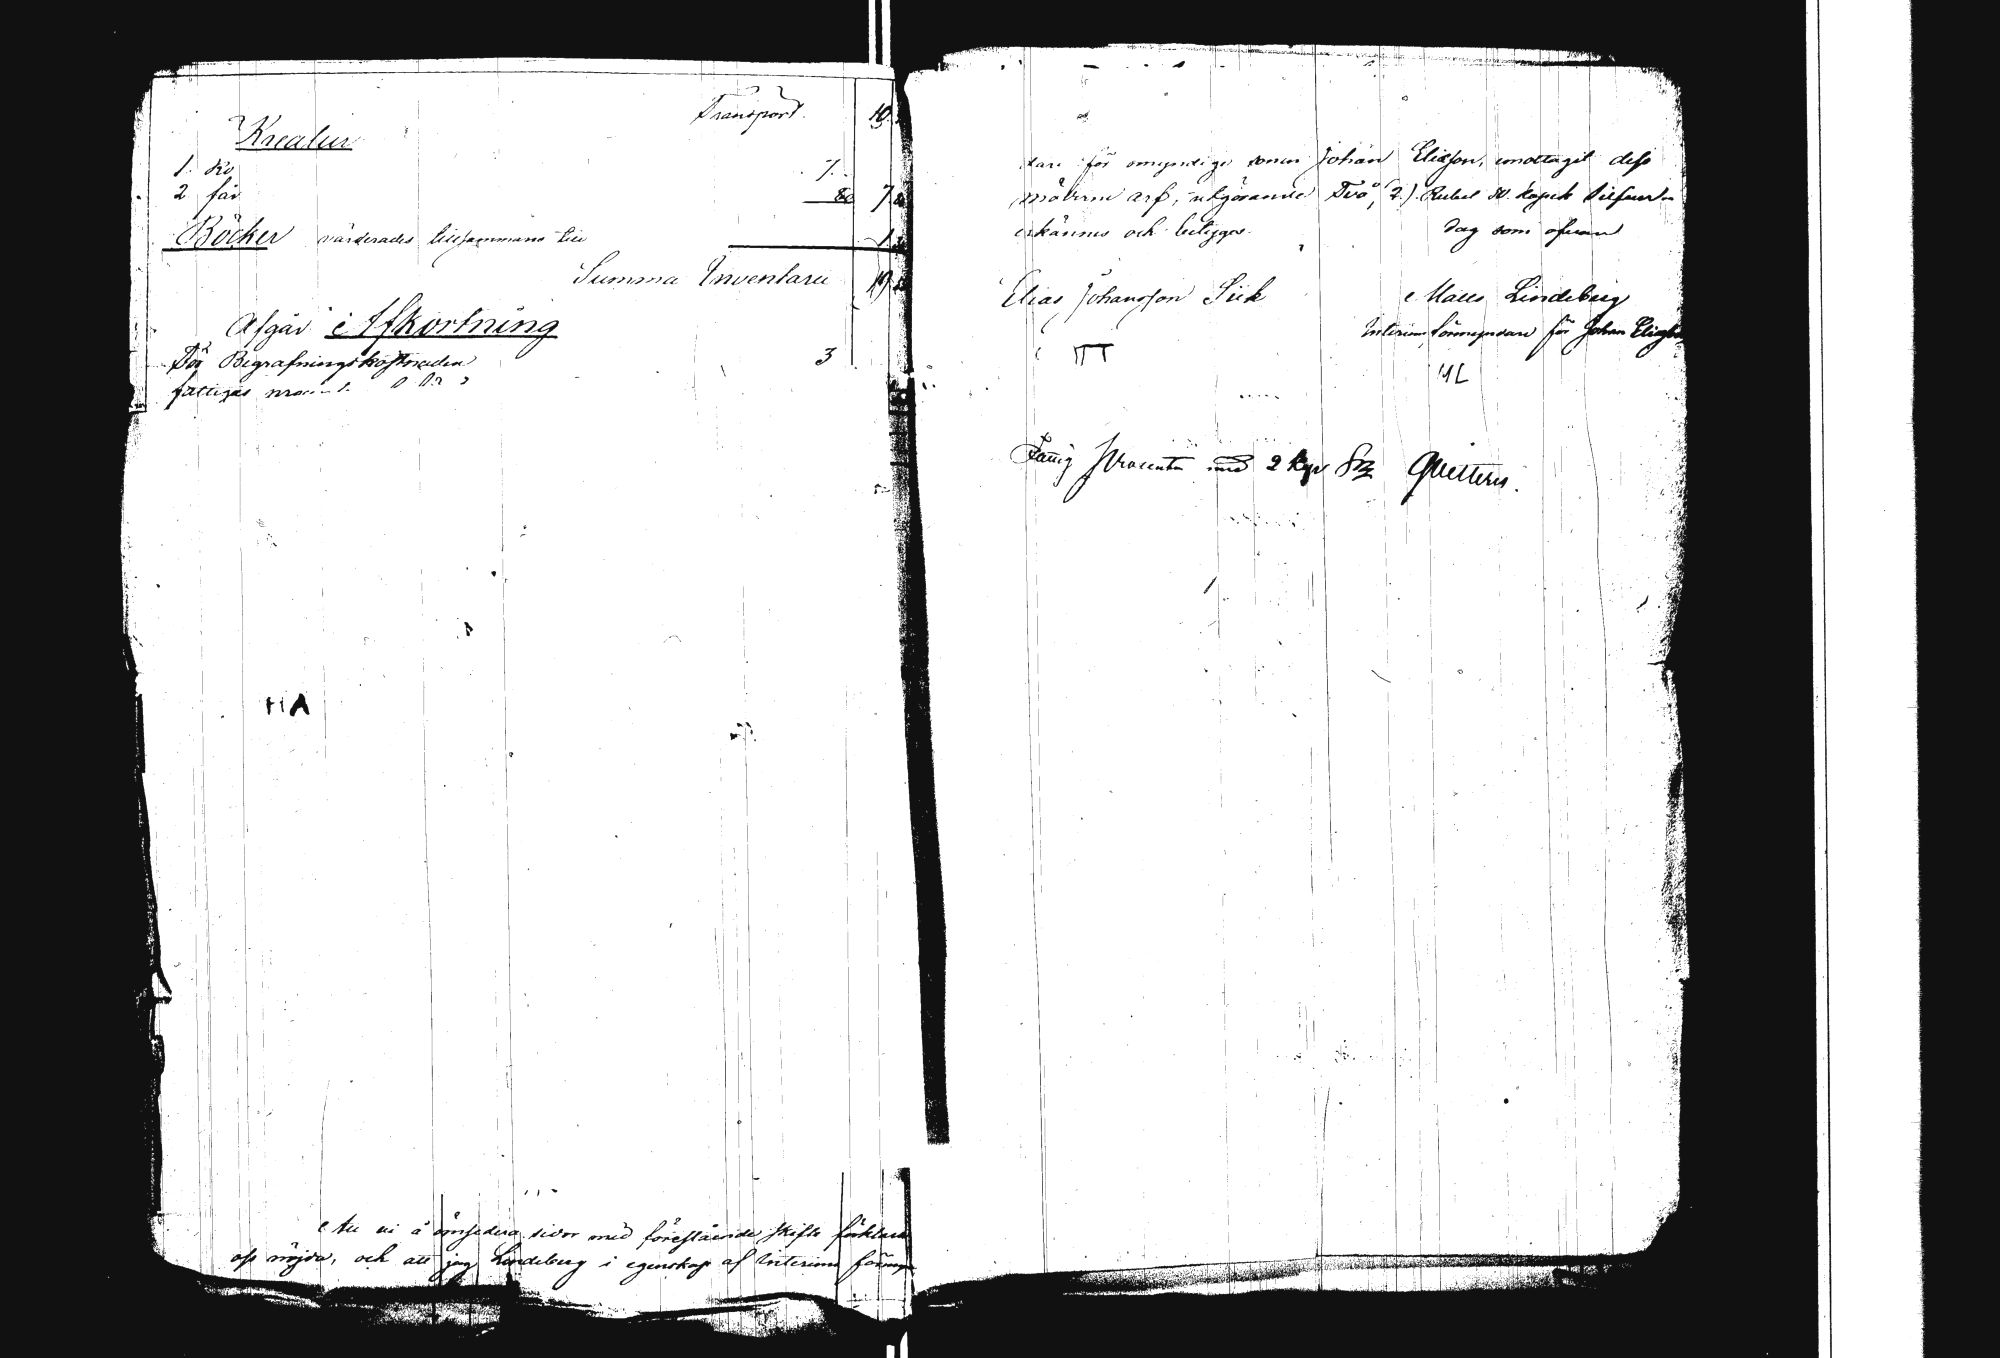 Transport. 10.
Kreatur
1. Ko 7.
2 får 80 7
Böcker värderades tillsammans till 1
Summa Inventarii 19
Afgår i Afkortning
För Begrafningskostnaden 3
fattigas
HA
Att vi å ömsedera sidor med förestående skifte förklara
oss nöjda, och att jag Lindeberg i egenskap af Interims förmyn
dare för omyndige sonen Johan Eliasson, emottagit dess
möderne arf, utgörande Två, (2.) Rubel 50. kopek Silfver
erkännes och betygas. Dag som ofvan
Elias Johansson Siik Matts Lindeberg
Interims förmyndare för Johan Eliasson
ML
Fattig Procenten med 2 kop Quitteras.